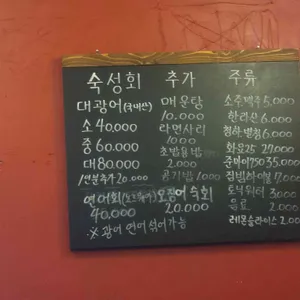 숙성회
대광어(국내산)
소 40.000
중 60.000
대 80.000
1인분추가 20.000
연어회
40.000
※ 광어 연어 섞어가능
추가
매운탕
10.000
라면사리
1000
초밥용밥
2.000
공기밥 1000
오징어 숙회
20.000
주류
소주맥주 5.000
한라산 6.000
청하,별빛 6.000
화요25 27.000
준마이750 35.000
짐빔하이볼 7.000
토닉워터 3.000
음료 2.000
레몬슬라이스 2.00